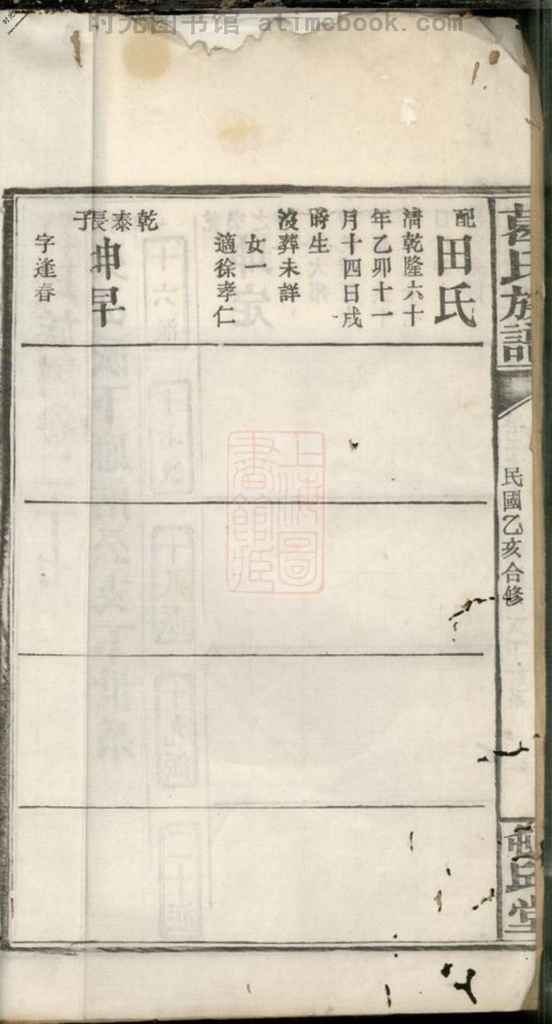 时光图书馆 atimebook.com
葛氏族譜
民國乙亥合修
配
田氏
清乾隆六十
年乙卯十一
月十四日戌
時生
沒葬未詳
女一
適徐孝仁
乾泰長子
坤早
字逢春
上海圖書館藏